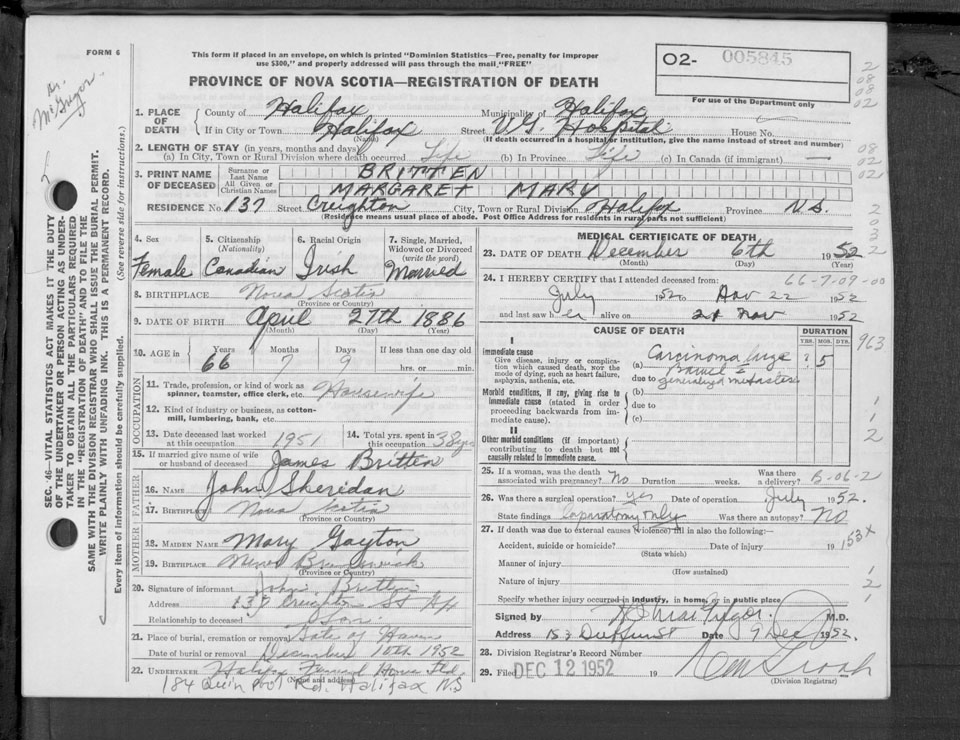 FORM 6
This form if placed in an envelope, on which is printed "Dominion Statistics—Free, penalty for improper
use $300," and properly addressed will pass through the mail, "FREE"
PROVINCE OF NOVA SCOTIA—REGISTRATION OF DEATH
02- 005845
For use of the Department only
2
08
08
02
Dr. McGregor
1. PLACE OF DEATH
County of Halifax Municipality of Halifax
If in City or Town Halifax Street V.G. Hospital House No.
(Name) (If death occurred in a hospital or institution, give the name instead of street and number)
2. LENGTH OF STAY (in years, months and days)
(a) In City, Town or Rural Division where death occurred Life (b) In Province Life (c) In Canada (if immigrant) —
08
02
02
3. PRINT NAME OF DECEASED
Surname or Last Name BRITTEN
All Given or Christian Names MARGARET MARY
RESIDENCE No. 137 Street Creighton City, Town or Rural Division Halifax Province N.S.
(Residence means usual place of abode. Post Office Address for residents in rural parts not sufficient)
4. Sex Female
5. Citizenship (Nationality) Canadian
6. Racial Origin Irish
7. Single, Married, Widowed or Divorced (write the word) Married
8. BIRTHPLACE Nova Scotia
(Province or Country)
9. DATE OF BIRTH April 27th 1886
(Month) (Day) (Year)
10. AGE in Years 66 Months 7 Days 9 If less than one day old
hrs. or min.
OCCUPATION
11. Trade, profession or kind of work as spinner, teamster, office clerk, etc. Housewife
12. Kind of industry or business, as cotton-mill, lumbering, bank, etc.
13. Date deceased last worked at this occupation 1951
14. Total yrs. spent in this occupation 38 yrs
15. If married give name of wife or husband of deceased James Britten
FATHER
16. NAME John Sheridan
17. BIRTHPLACE Nova Scotia
(Province or Country)
MOTHER
18. MAIDEN NAME Mary Gayton
19. BIRTHPLACE New Brunswick
(Province or Country)
20. Signature of informant John Britten
Address 137 Creighton St Hfx
Relationship to deceased Son
21. Place of burial, cremation or removal Gate of Haven
Date of burial or removal December 10th 1952
22. UNDERTAKER Halifax Funeral Home Ltd.
(Name and Address)
184 Quinpool Rd. Halifax N.S
MEDICAL CERTIFICATE OF DEATH
23. DATE OF DEATH December 6th 1952
(Month) (Day) (Year)
24. I HEREBY CERTIFY that I attended deceased from 66-7-09-00
July 1952 to Nov 22 1952
and last saw her alive on 21 Nov 1952
CAUSE OF DEATH
DURATION
YRS. MOS. DYS.
963
I
Immediate cause
Give disease, injury or complication which caused death, not the mode of dying, such as heart failure, asphyxia, asthenia, etc.
(a) Carcinoma large Bowel ? 5
due to generalized metastases
Morbid conditions, if any, giving rise to immediate cause (stated in order proceeding backwards from immediate cause).
(b)
due to
(c)
II
Other morbid conditions (if important) contributing to death but not causally related to immediate cause.
1
1
2
25. If a woman, was the death associated with pregnancy? No Duration weeks. Was there a delivery? B-06-2
26. Was there a surgical operation? yes Date of operation July 1952.
State findings Laparotomy only Was there an autopsy? NO
27. If death was due to external causes (violence) fill in also the following:—
Accident, suicide or homicide? Date of injury 19 153X
(State which)
Manner of injury
(How sustained)
Nature of injury
1
2
1
Specify whether injury occurred in industry, in home, or in public place
Signed by M.D.
Address 153 Date 9 Dec 1952.
28. Division Registrar's Record Number
29. Filed DEC 12 1952 19
(Division Registrar)
SEC. 46—VITAL STATISTICS ACT MAKES IT THE DUTY
OF THE UNDERTAKER OR PERSON ACTING AS UNDER-
TAKER TO OBTAIN ALL THE PARTICULARS REQUIRED
IN THE "REGISTRATION OF DEATH" AND TO FILE THE
SAME WITH THE DIVISION REGISTRAR WHO SHALL ISSUE THE BURIAL PERMIT.
WRITE PLAINLY WITH UNFADING INK. THIS IS A PERMANENT RECORD.
Every item of information should be carefully supplied. (See reverse side for instructions.)